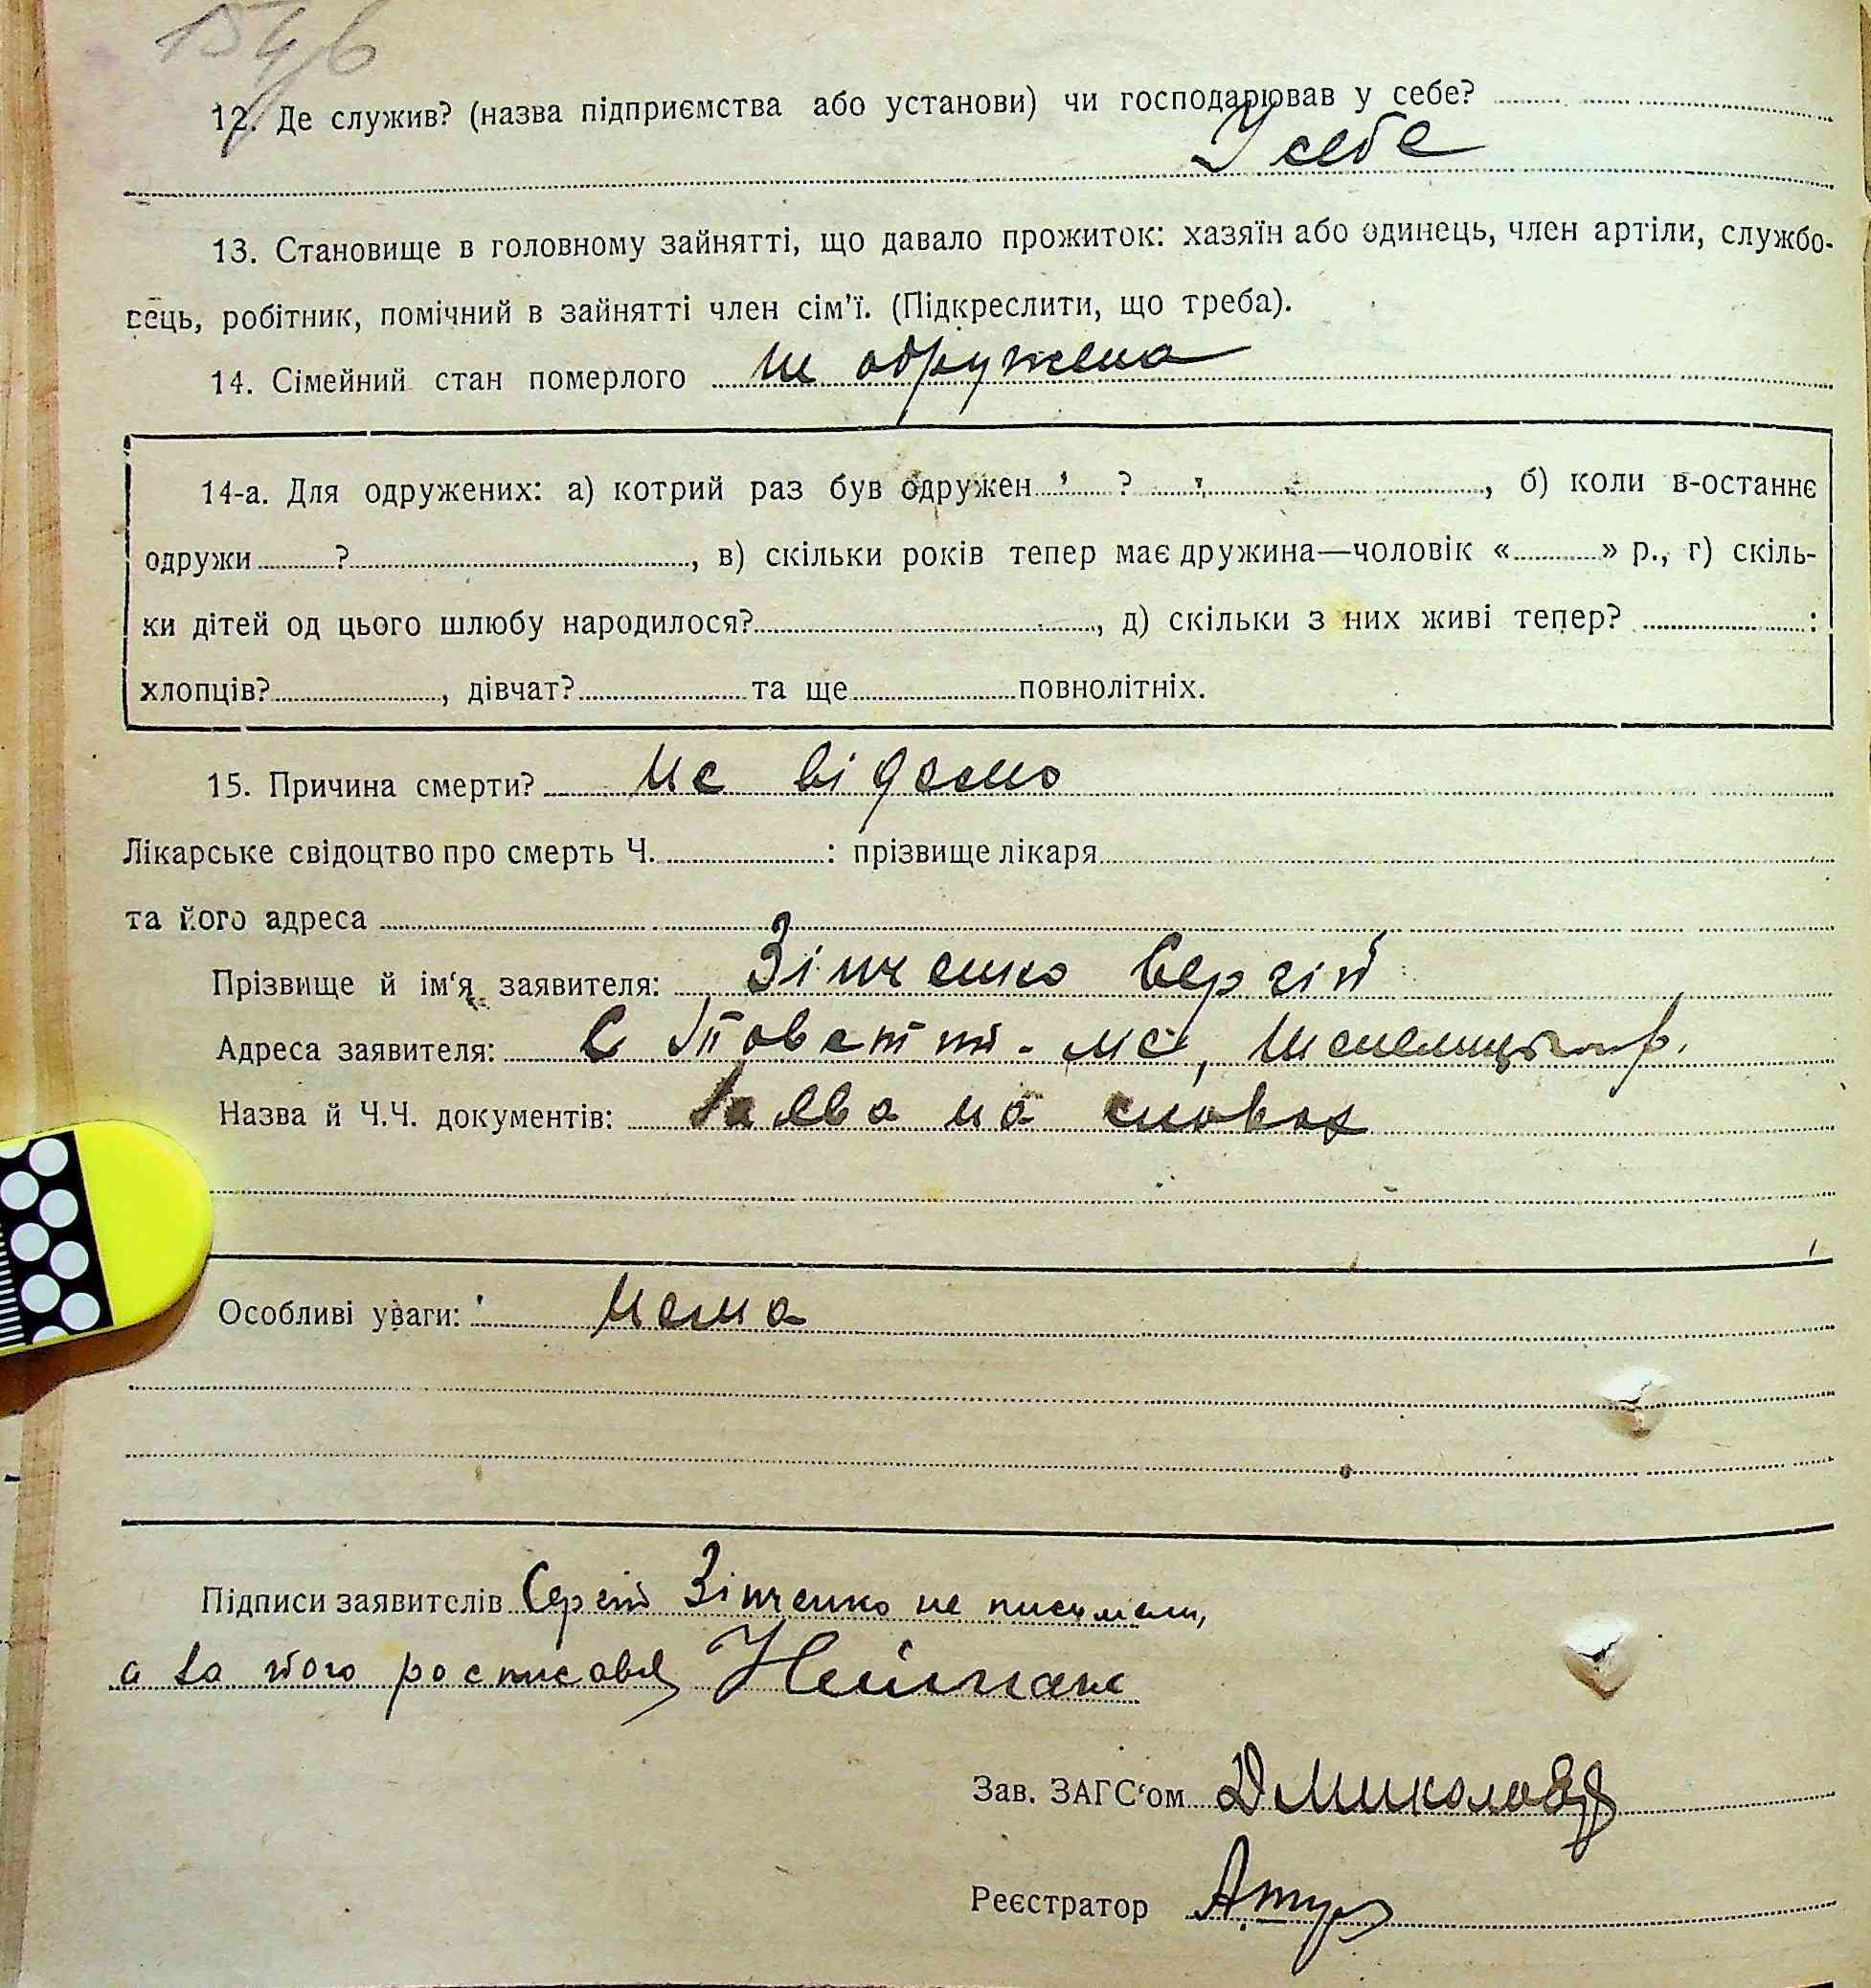 12. Де служив? (назва підприємства або установи) чи господарював у себе?
У себе
13. Становище в головному зайнятті, що давало прожиток: хазяїн або одинець, член артіли, службо-
вець, робітник, помічний в зайнятті член сім'ї. (Підкреслити, що треба).
14. Сімейний стан померлого не одружена
14-а. Для одружених: а) котрий раз був одружен ? , б) коли в-останнє
одружи ? , в) скільки років тепер має дружина—чоловік « » р., г) скіль-
ки дітей од цього шлюбу народилося? , д) скільки з них живі тепер? :
хлопців? , дівчат? та ще повнолітніх.
15. Причина смерти? не відомо
Лікарське свідоцтво про смерть Ч. : прізвище лікаря
та його адреса
Прізвище й ім'я заявителя: Зінченко Сергій
Адреса заявителя: С
Назва й Ч.Ч. документів: Заява на словах
Особливі уваги: нема
Підписи заявителів Сергій Зінченко не
а за його росписавсь
Зав. ЗАГС'ом
Реєстратор